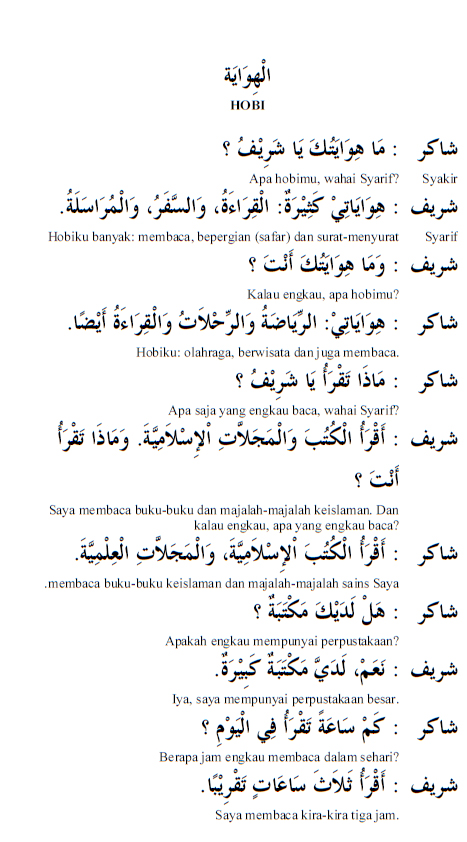 الْهِوَايَة
HOBI
شاكر : مَا هِوَايَتُكَ يَا شَرِيْفُ ؟
Apa hobimu, wahai Syarif? Syakir
شريف : هِوَايَاتِيْ كَثِيْرَةٌ: الْقِرَاءَةُ، وَالسَّفَرُ، وَالْمُرَاسَلَةُ.
Hobiku banyak: membaca, bepergian (safar) dan surat-menyurat Syarif
شريف : وَمَا هِوَايَتُكَ أَنْتَ ؟
Kalau engkau, apa hobimu?
شاكر : هِوَايَاتِيْ: الرِّيَاضَةُ وَالرِّحْلَاتُ وَالْقِرَاءَةُ أَيْضًا.
Hobiku: olahraga, berwisata dan juga membaca.
شاكر : مَاذَا تَقْرَأُ يَا شَرِيْفُ ؟
Apa saja yang engkau baca, wahai Syarif?
شريف : أَقْرَأُ الْكُتُبَ وَالْمَجَلَّاتِ اْلإِسْلَامِيَّةَ. وَمَاذَا تَقْرَأُ
أَنْتَ ؟
Saya membaca buku-buku dan majalah-majalah keislaman. Dan
kalau engkau, apa yang engkau baca?
شاكر : أَقْرَأُ الْكُتُبَ اْلإِسْلَامِيَّةَ، وَالْمَجَلَّاتِ الْعِلْمِيَّةَ.
.membaca buku-buku keislaman dan majalah-majalah sains Saya
شاكر : هَلْ لَدَيْكَ مَكْتَبَةٌ ؟
Apakah engkau mempunyai perpustakaan?
شريف : نَعَمْ، لَدَيَّ مَكْتَبَةٌ كَبِيْرَةٌ.
Iya, saya mempunyai perpustakaan besar.
شاكر : كَمْ سَاعَةً تَقْرَأُ فِي الْيَوْمِ ؟
Berapa jam engkau membaca dalam sehari?
شريف : أَقْرَأُ ثَلَاثَ سَاعَاتٍ تَقْرِيْبًا.
Saya membaca kira-kira tiga jam.